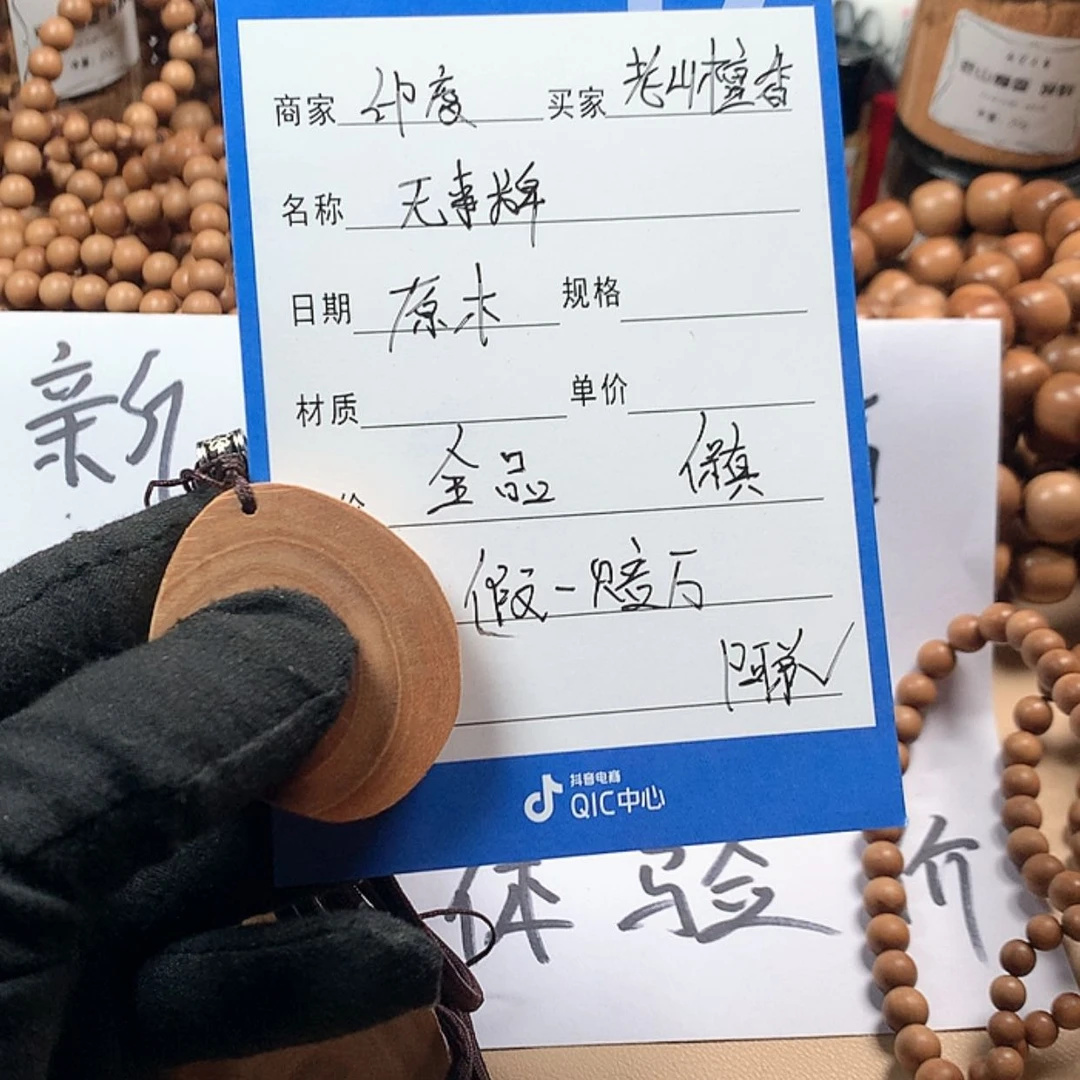 商家 印度 买家 老山檀香
名称 无事牌
日期 原木 规格
材质 单价
价 全品 保真
假一赔万
抖音电商
QIC中心
新
体验价